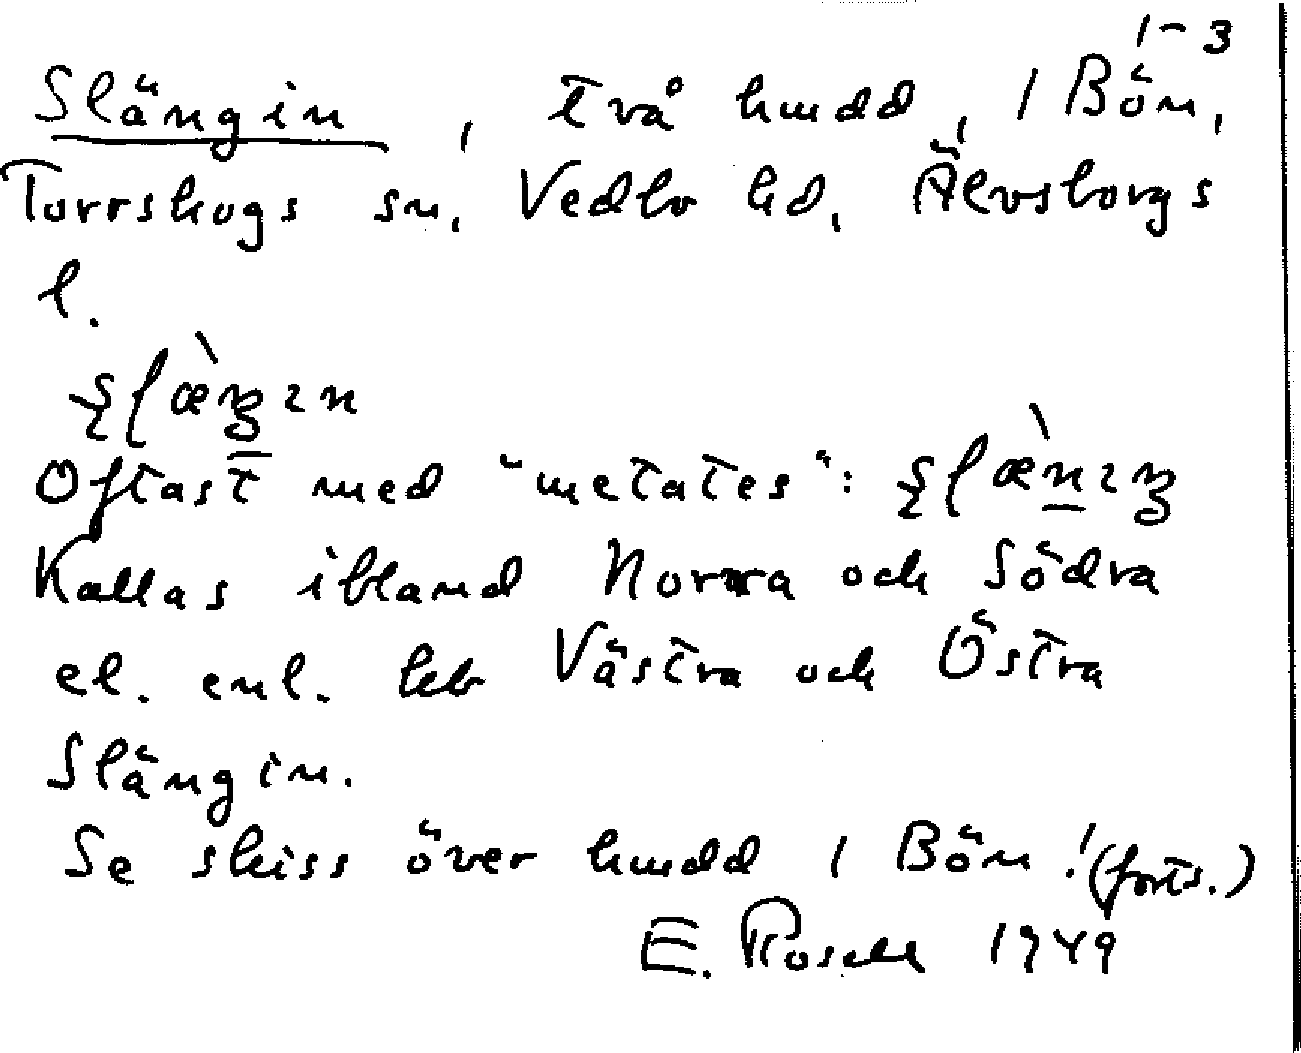 1-3
Slängin, två hmdd, 1 Bön,
Torrskogs sn, Vedbo hd, Älvsborgs
l.
Oftast med "metates":
Kallas ibland Norra och Södra
el. enl. kb Västra och Östra
Slängin.
Se skiss över hmdd 1 Bön! (forts.)
E. Rosell 1949